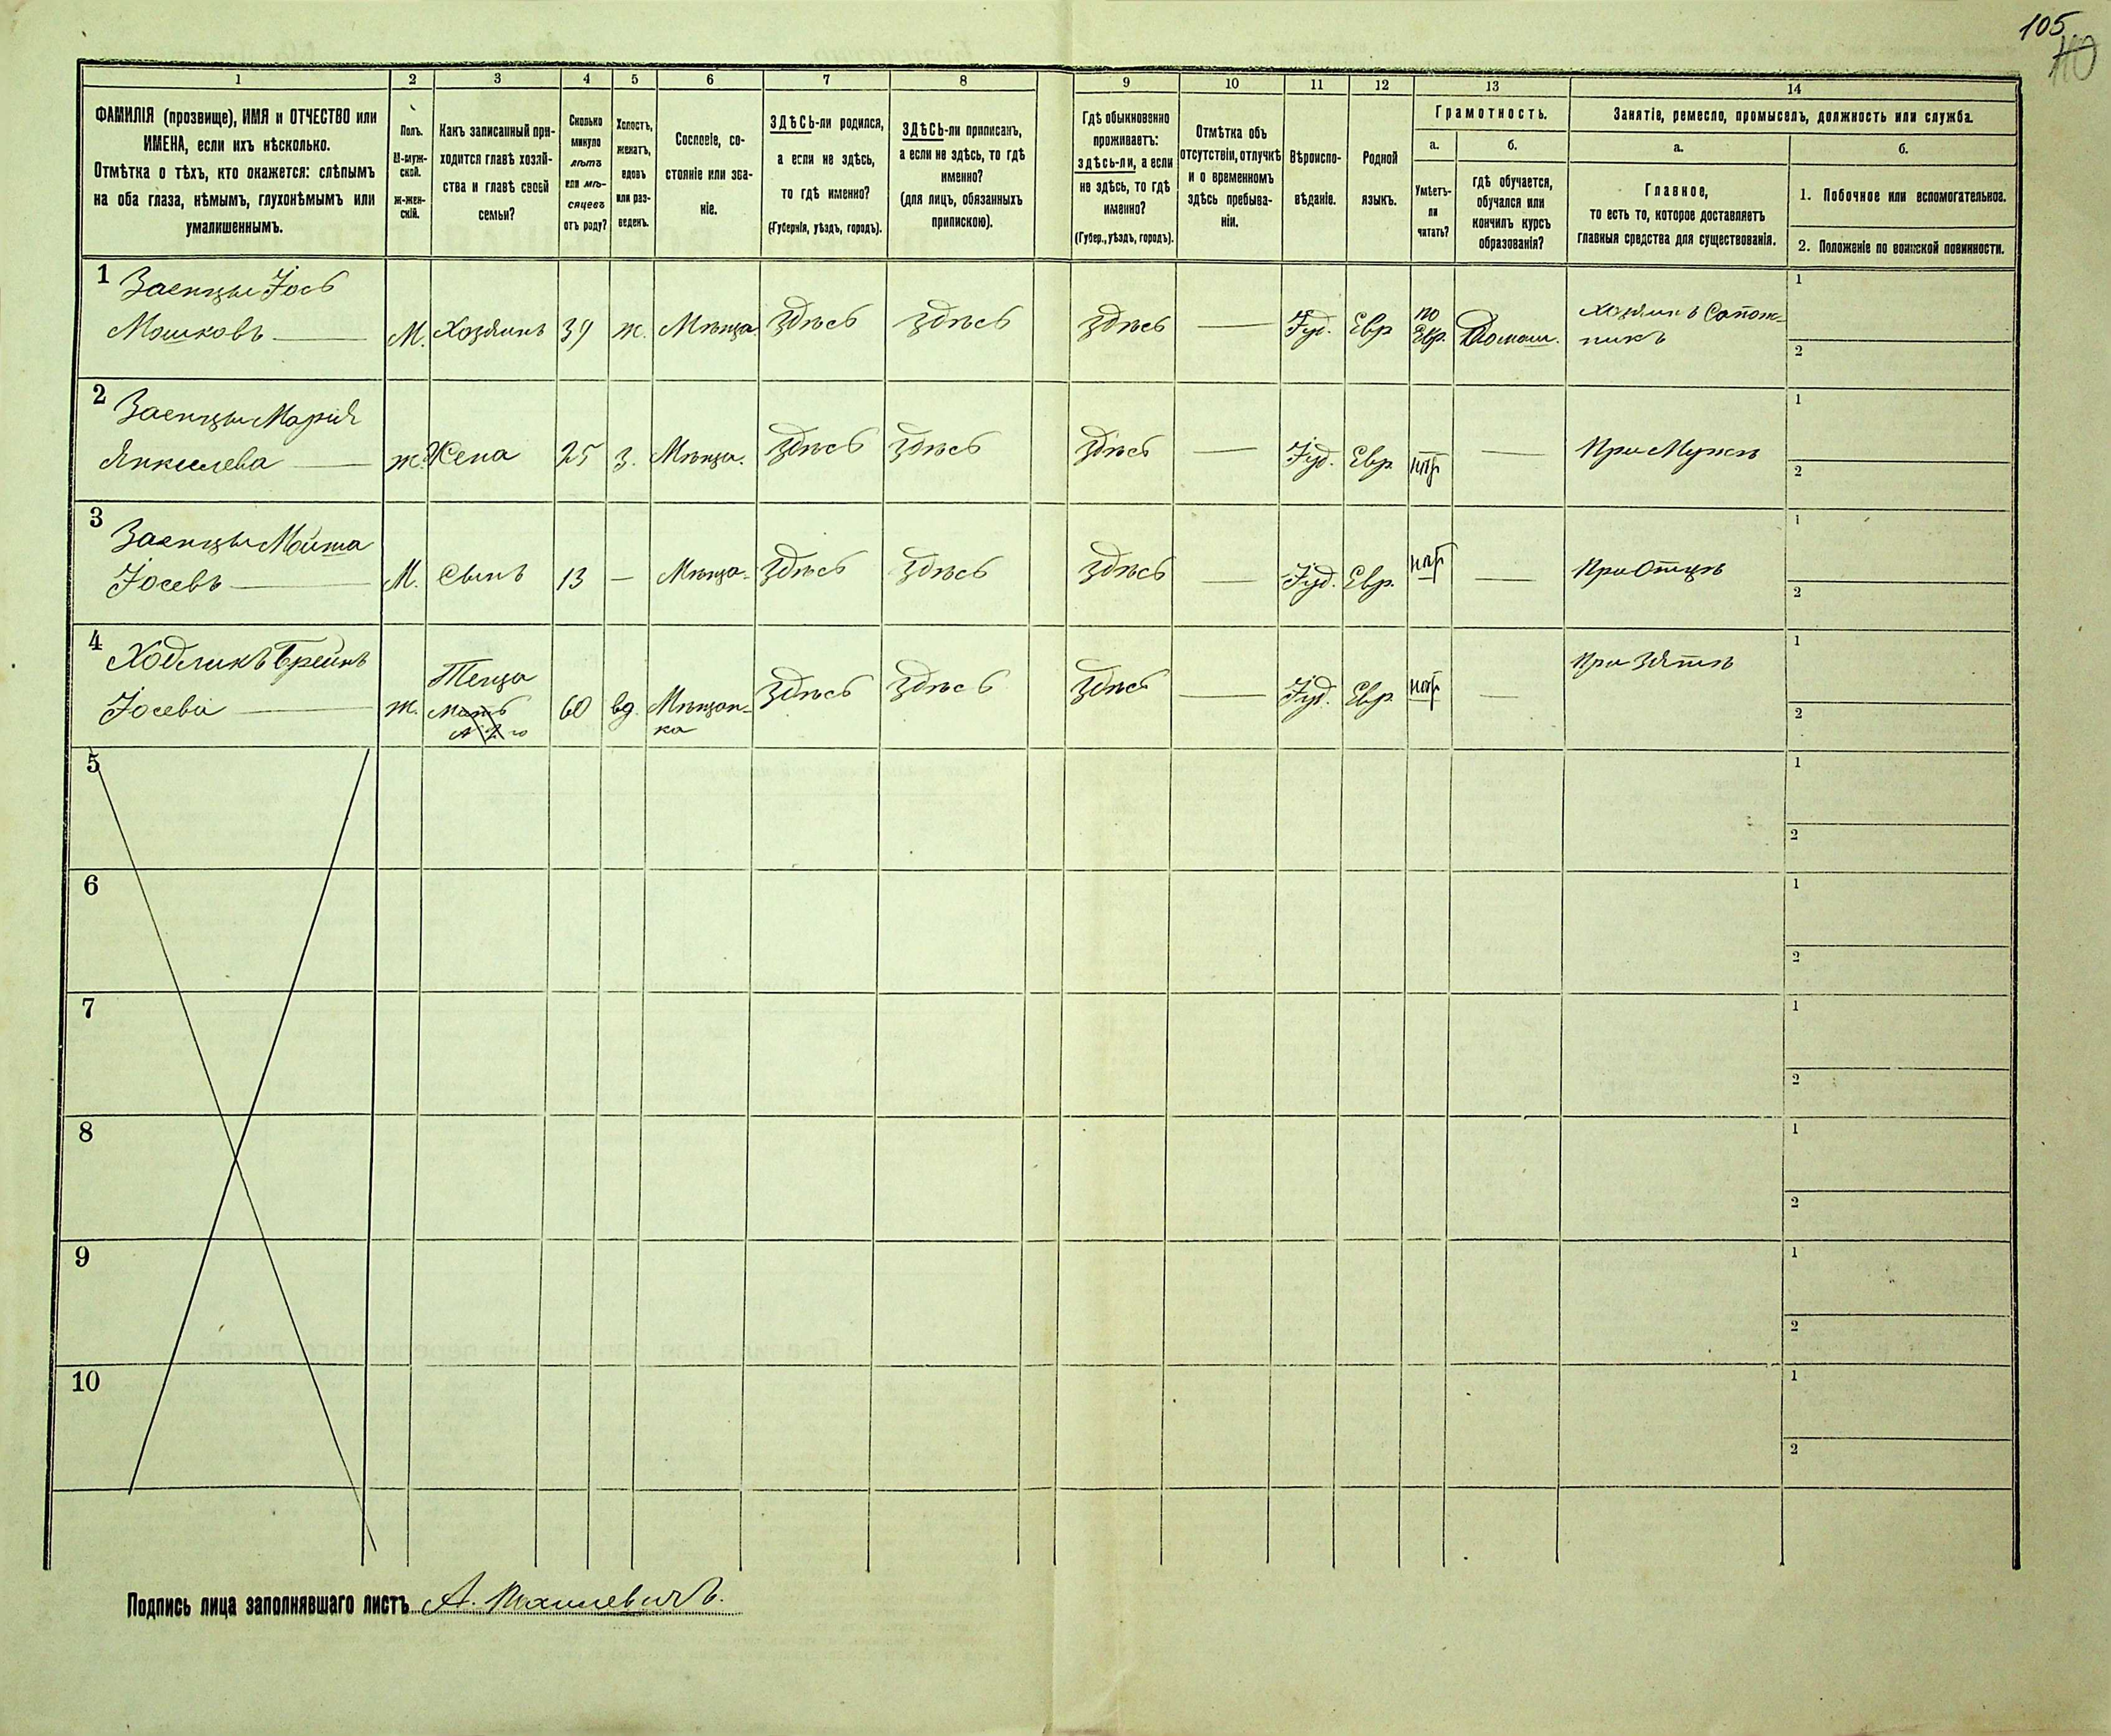 105
110
1 2 3 4 5 6 7 8 9 10 11 12 13 14
ФАМИЛІЯ (прозвище), ИМЯ и ОТЧЕСТВО или
ИМЕНА, если ихъ нѣсколько.
Отмѣтка о тѣхъ, кто окажется: слѣпымъ
на оба глаза, нѣмымъ, глухонѣмымъ или
умалишеннымъ.
Полъ.
М-муж-
ской.
ж-жен-
скій.
Какъ записанный при-
ходится главѣ хозяй-
ства и главѣ своей
семьи?
Сколько
минуло
лѣтъ
или мѣ-
сяцевъ
отъ роду?
Холостъ,
женатъ,
вдовъ
или раз-
веденъ.
Сословіе, со-
стояніе или зва-
ніе.
ЗДѢСЬ-ли родился,
а если не здѣсь,
то гдѣ именно?
(Губернія, уѣздъ, городъ).
ЗДѢСЬ-ли приписанъ,
а если не здѣсь, то гдѣ
именно?
(для лицъ, обязанныхъ
припискою).
Гдѣ обыкновенно
проживаетъ:
здѣсь-ли, а если
не здѣсь, то гдѣ
именно?
(Губер., уѣздъ, городъ).
Отмѣтка объ
отсутствіи, отлучкѣ
и о временномъ
здѣсь пребыва-
ніи.
Вѣроиспо-
вѣданіе.
Родной
языкъ.
Грамотность.
а.
Умѣетъ-
ли
читать?
б.
гдѣ обучается,
обучался или
кончилъ курсъ
образованія?
Занятіе, ремесло, промыселъ, должность или служба.
а.
Главное,
то есть то, которое доставляетъ
главныя средства для существованія.
б.
1. Побочное или вспомогательное.
2. Положеніе по воинской повинности.
1 Заенцы Іось
Мошковъ М. Хозяинъ 39 ж. Мѣща. Здѣсь Здѣсь Здѣсь — Іуд. Евр по Евр. Домаш. Хозяинъ Сапож-
никъ
1
2
2 Заенцы Марія
Янкелева ж. Жена 25 З. Мѣща. Здѣсь Здѣсь Здѣсь — Іуд. Евр. нѣт — При Мужѣ
1
2
3 Заенцы Мойша
Іосевъ М. Сынъ 13 — Мѣща. Здѣсь Здѣсь Здѣсь — Іуд. Евр. нѣт — При Отцѣ
1
2
4 Ходликъ Брейнѣ
Іосева ж. Теща Мать 60 вд. Мѣщан-
ка Здѣсь Здѣсь Здѣсь — Іуд. Евр. нѣт — При Зятѣ
1
2
5
1
2
6
1
2
7
1
2
8
1
2
9
1
2
10
1
2
Подпись лица заполнявшаго листъ